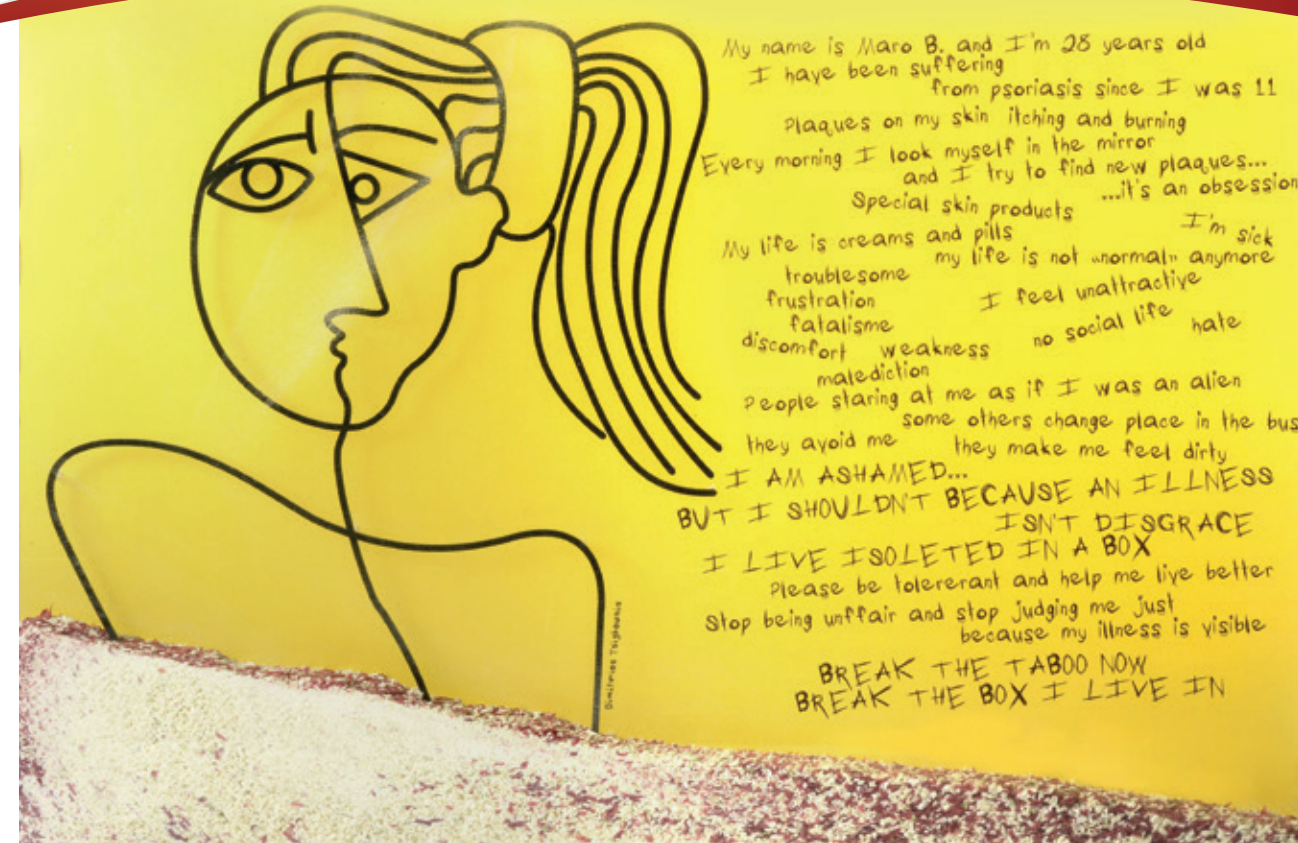 My name is Maro B. and I'm 28 years old
I have been suffering
from psoriasis since I was 11
Plaques on my skin itching and burning
Every morning I look myself in the mirror
and I try to find new plaques...
...it's an obsession
Special skin products
I'm sick
My life is creams and pills
my life is not „normal„ anymore
troublesome
frustration
I feel unattractive
fatalisme
no social life hate
discomfort weakness
malediction
People staring at me as if I was an alien
some others change place in the bus
they avoid me they make me feel dirty
I AM ASHAMED...
BUT I SHOULDN'T BECAUSE AN ILLNESS
ISN'T DISGRACE
I LIVE ISOLETED IN A BOX
Please be tolererant and help me live better
Stop being unffair and stop judging me just
because my illness is visible
BREAK THE TABOO NOW
BREAK THE BOX I LIVE IN